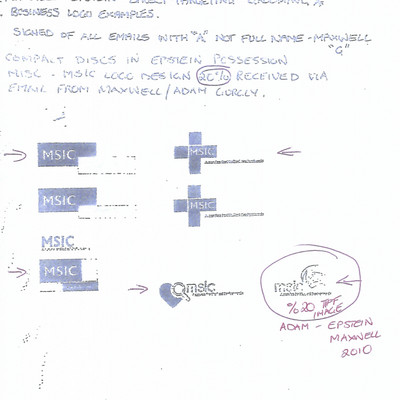 BUSINESS LOGO EXAMPLES.
SIGNED OF ALL EMAILS WITH "A" NOT FULL NAME - MAXWELL
"G"
COMPACT DISCS IN EPSTEIN POSSESSION
MISC - MSIC LOGO DESIGN 20% RECEIVED VIA
EMAIL FROM MAXWELL/ADAM
MSIC
MSIC
MSIC
MSIC
MSIC
MSIC
msic
msic
% 20 TIFF
IMAGE
ADAM - EPSTEIN
MAXWELL
2010